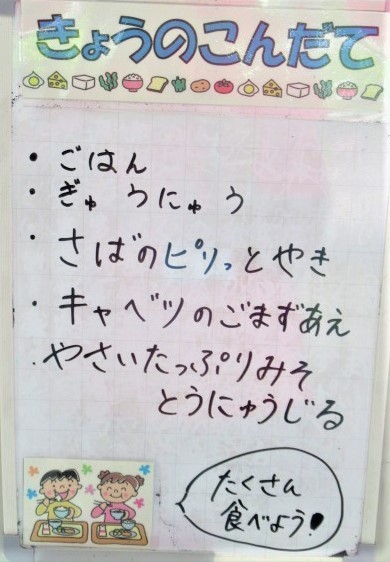 きょうのこんだて
・ごはん
・ぎゅうにゅう
・さばのピリっとやき
・キャベツのごまずあえ
・やさいたっぷりみそ
とうにゅうじる
たくさん
食べよう!